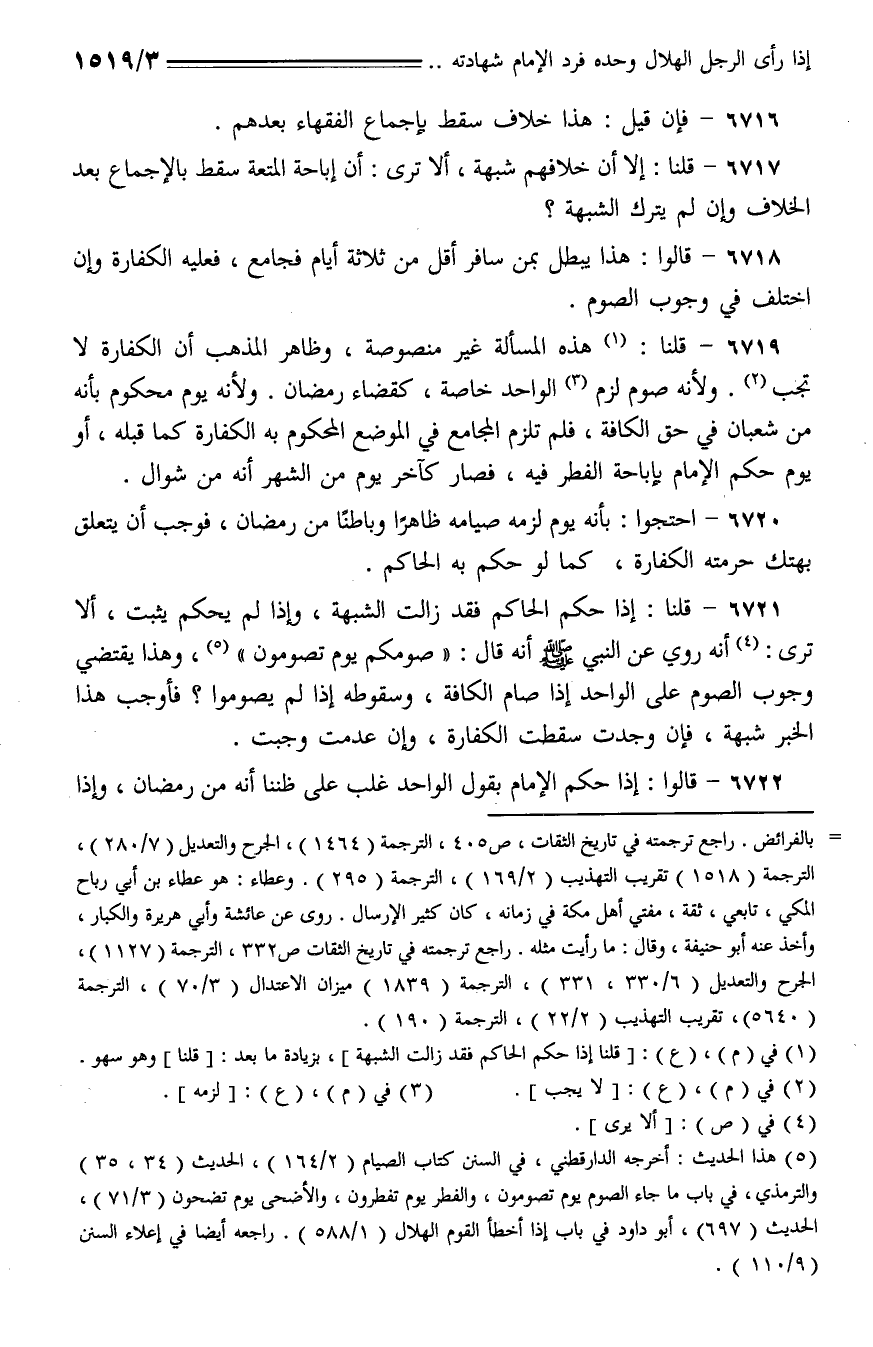 إذا رأى الرجل الهلال وحده فرد الإمام شهادته .. ١٥١٩/٣
٦٧١٦ – فإن قيل : هذا خلاف سقط بإجماع الفقهاء بعدهم .
٦٧١٧ – قلنا : إلا أن خلافهم شبهة ، ألا ترى : أن إباحة المتعة سقط بالإجماع بعد
الخلاف وإن لم يترك الشبهة ؟
٦٧١٨ – قالوا : هذا يبطل بمن سافر أقل من ثلاثة أيام فجامع ، فعليه الكفارة وإن
اختلف في وجوب الصوم .
٦٧١٩ – قلنا : (١) هذه المسألة غير منصوصة ، وظاهر المذهب أن الكفارة لا
تجب (٢) . ولأنه صوم لزم (٣) الواحد خاصة ، كقضاء رمضان . ولأنه يوم محكوم بأنه
من شعبان في حق الكافة ، فلم تلزم المجامع في الموضع المحكوم به الكفارة كما قبله ، أو
يوم حكم الإمام بإباحة الفطر فيه ، فصار كآخر يوم من الشهر أنه من شوال .
٦٧٢٠ – احتجوا : بأنه يوم لزمه صيامه ظاهرًا وباطنًا من رمضان ، فوجب أن يتعلق
بهتك حرمته الكفارة ، كما لو حكم به الحاكم .
٦٧٢١ – قلنا : إذا حكم الحاكم فقد زالت الشبهة ، وإذا لم يحكم يثبت ، ألا
ترى : (٤) أنه روي عن النبي ﷺ أنه قال : « صومكم يوم تصومون » (٥) ، وهذا يقتضي
وجوب الصوم على الواحد إذا صام الكافة ، وسقوطه إذا لم يصوموا ؟ فأوجب هذا
الخبر شبهة ، فإن وجدت سقطت الكفارة ، وإن عدمت وجبت .
٦٧٢٢ – قالوا : إذا حكم الإمام بقول الواحد غلب على ظننا أنه من رمضان ، وإذا
= بالفرائض . راجع ترجمته في تاريخ الثقات ، ص٤٠٥ ، الترجمة ( ١٤٦٤ ) ، الجرح والتعديل ( ٢٨٠/٧ ) ،
الترجمة ( ١٥١٨ ) تقريب التهذيب ( ١٦٩/٢ ) ، الترجمة ( ٢٩٥ ) . وعطاء : هو عطاء بن أبي رباح
المكي ، تابعي ، ثقة ، مفتي أهل مكة في زمانه ، كان كثير الإرسال . روى عن عائشة وأبي هريرة والكبار ،
وأخذ عنه أبو حنيفة ، وقال : ما رأيت مثله . راجع ترجمته في تاريخ الثقات ص٣٣٢ ، الترجمة ( ١١٢٧ ) ،
الجرح والتعديل ( ٣٣٠/٦ ، ٣٣١ ) ، الترجمة ( ١٨٣٩ ) ميزان الاعتدال ( ٧٠/٣ ) ، الترجمة
( ٥٦٤٠ ) ، تقريب التهذيب ( ٢٢/٢ ) ، الترجمة ( ١٩٠ ) .
(١) في ( م ) ، ( ع ) : [ قلنا إذا حكم الحاكم فقد زالت الشبهة ] ، بزيادة ما بعد : [ قلنا ] وهو سهو .
(٢) في ( م ) ، ( ع ) : [ لا يجب ] . (٣) في ( م ) ، ( ع ) : [ لزمه ] .
(٤) في ( ص ) : [ ألا يرى ] .
(٥) هذا الحديث : أخرجه الدارقطني ، في السنن كتاب الصيام ( ١٦٤/٢ ) ، الحديث ( ٣٤ ، ٣٥ )
والترمذي ، في باب ما جاء الصوم يوم تصومون ، والفطر يوم تفطرون ، والأضحى يوم تضحون ( ٧١/٣ ) ،
الحديث ( ٦٩٧) ، أبو داود في باب إذا أخطأ القوم الهلال ( ٥٨٨/١ ) . راجعه أيضا في إعلاء السنن
( ١١٠/٩ ) .